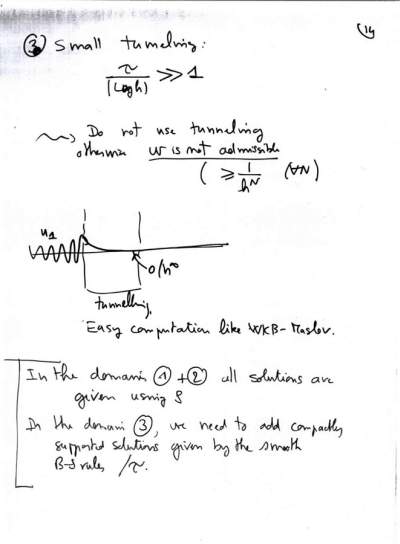 14
③ Small tunnelling:
τ / |Log h| >> 1
Do not use tunnelling
otherwise w is not admissible
( ≥ 1/h^N (∀N)
u1
O(h^∞
tunnelling,
Easy computation like WKB-Maslov.
In the domain ① + ② all solutions are
given using
In the domain ③, we need to add compactly
supported solutions given by the smooth
B-S rules /τ.